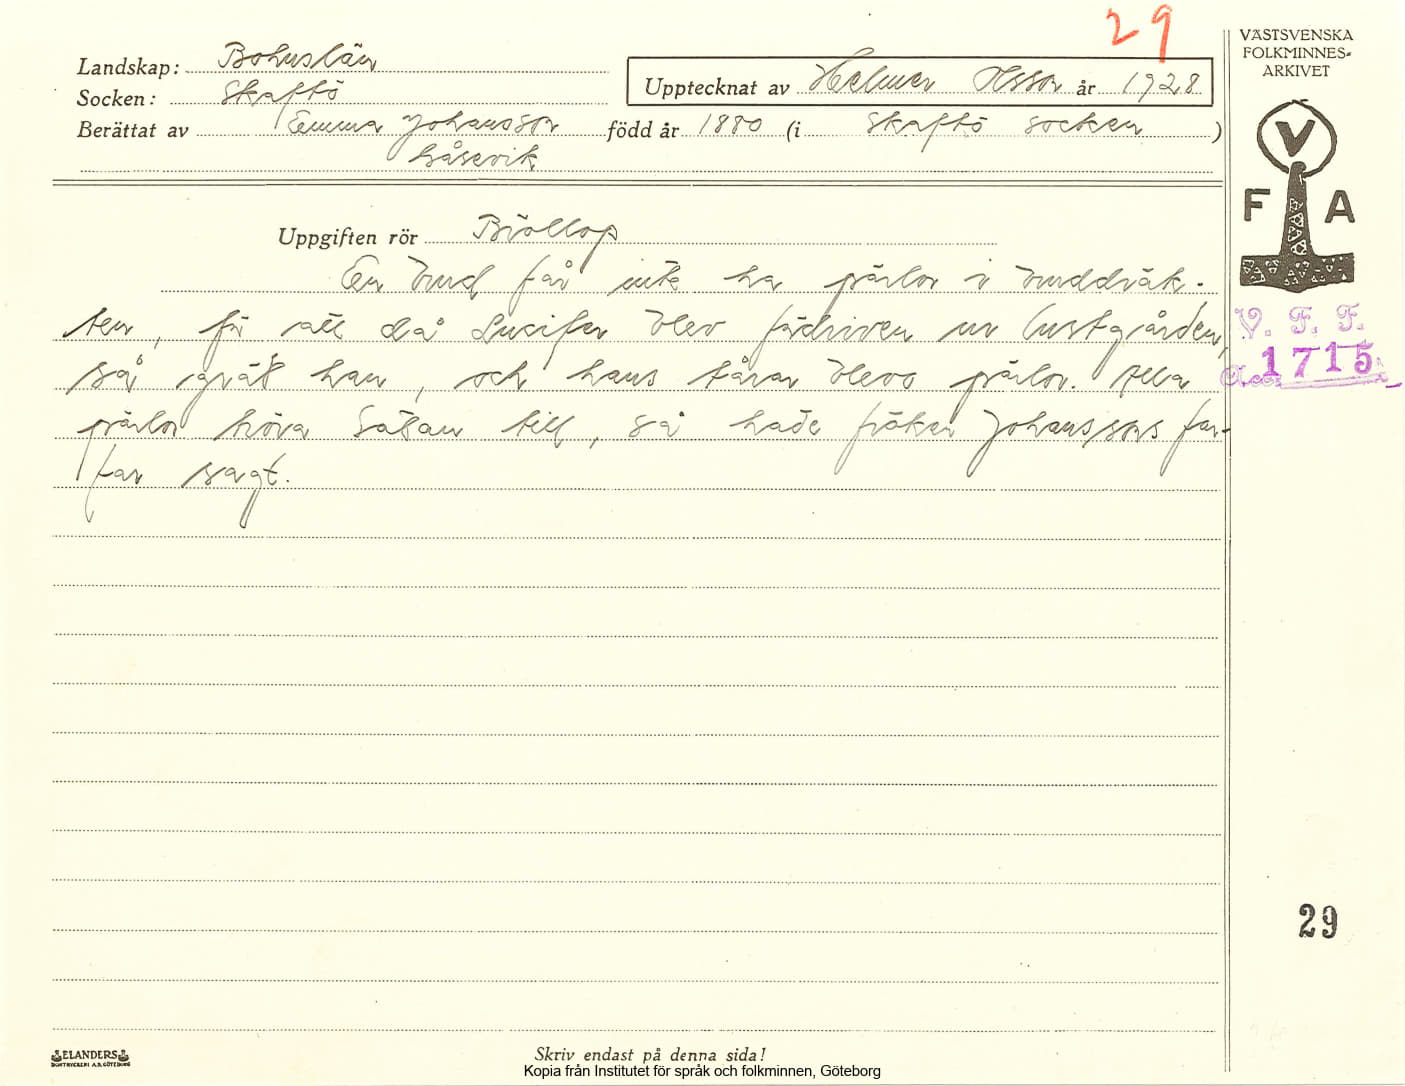 29
VÄSTSVENSKA
FOLKMINNES-
ARKIVET
Landskap: Bohuslän
Socken: Skaftö
Upptecknat av Helmer Olsson år 1928
Berättat av Emma Johansson född år 1880 (i Skaftö socken)
Gåsevik
V
F A
Uppgiften rör Bröllop
En brud får inte ha pärlor i bruddräk-
ten, för att då Lucifer blev fördriven ur lustgården,
så grät han, och hans tårar blevo pärlor. Alla
pärlor höra Satan till, så hade fröken Johanssons far-
far sagt.
V. F. F.
Acc. 1715
29
ELANDERS
BOKTRYCKERI A.B. GÖTEBORG
Skriv endast på denna sida!
Kopia från Institutet för språk och folkminnen, Göteborg